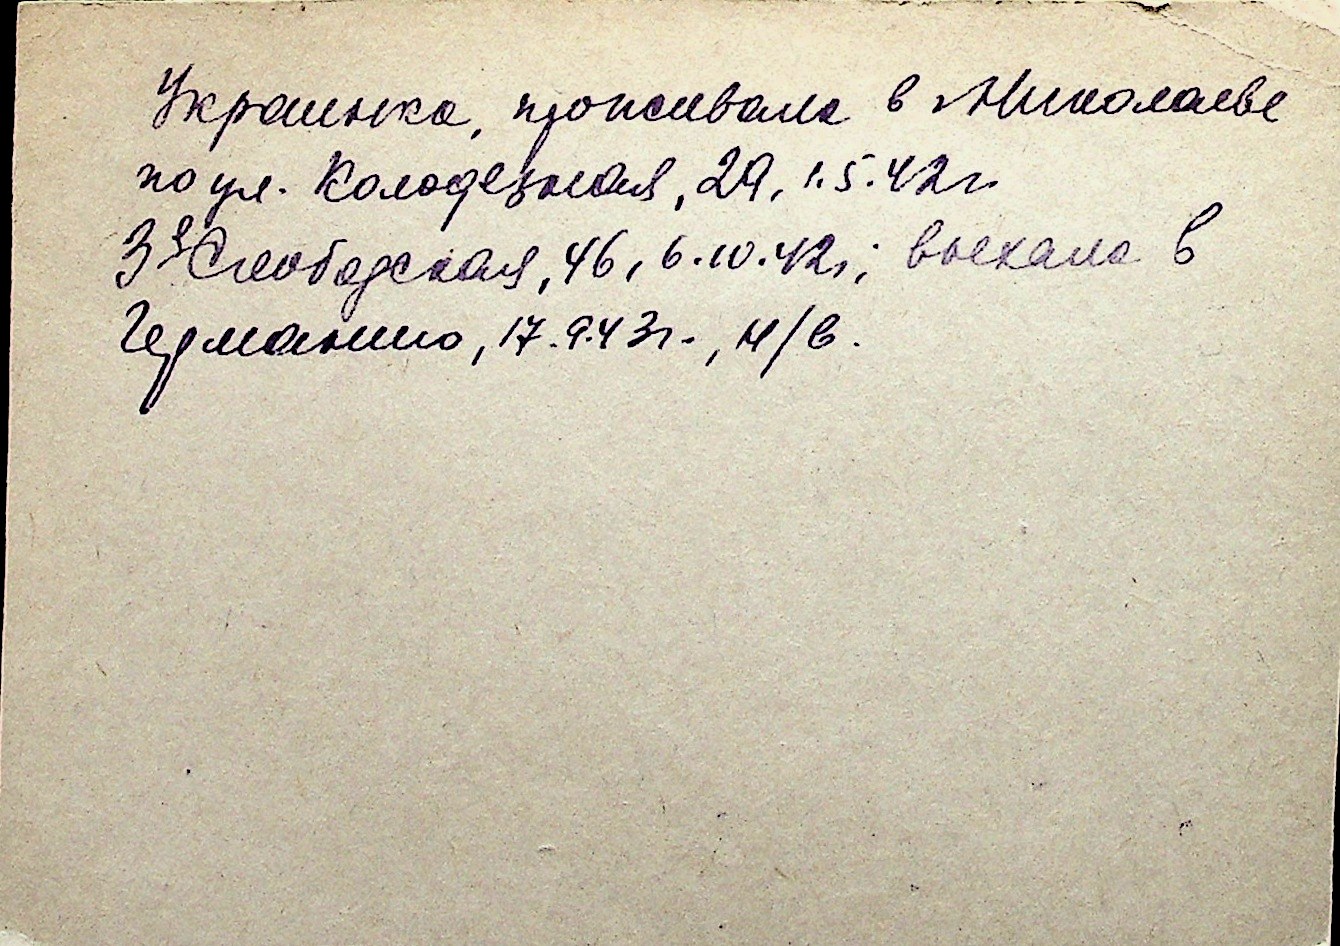 Украинка, проживала в г.Николаеве
по ул. Колодезная, 29, 1.5.42г.
3я Слободская, 46, 6.10.42г.; выехала в
Германию, 17.9.43г., н/в.